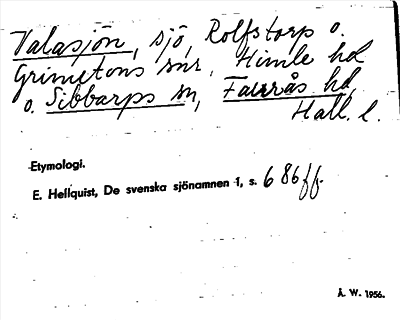 Valasjön, sjö, Rolfstorps o.
Grimetons snr, Himle hd
o. Sibbarps sn, Faurås hd,
Hall. l.
Etymologi.
E. Hellquist, De svenska sjönamnen 1, s. 686 ff.
Å. W. 1956.